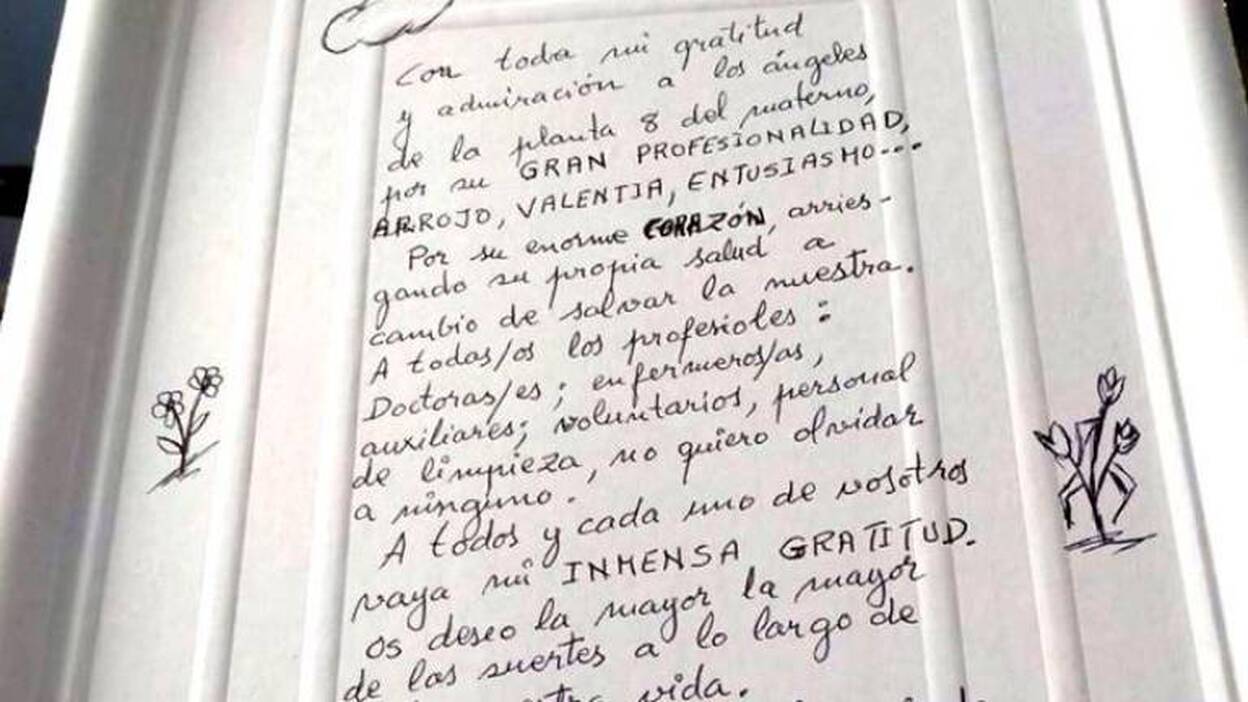 Con toda mi gratitud
y admiración a los ángeles
de la planta 8 del materno,
por su GRAN PROFESIONALIDAD,
ARROJO, VALENTIA, ENTUSIASMO...
Por su enorme CORAZÓN, arries-
gando su propia salud a
cambio de salvar la nuestra.
A todas/os los profesioles :
Doctoras/es ; enfermeros/as,
auxiliares; voluntarios, personal
de limpieza, no quiero olvidar
a ninguno.
A todos y cada uno de vosotros
vaya mi INMENSA GRATITUD.
os deseo la mayor la mayor
de las suertes a lo largo de
vida.